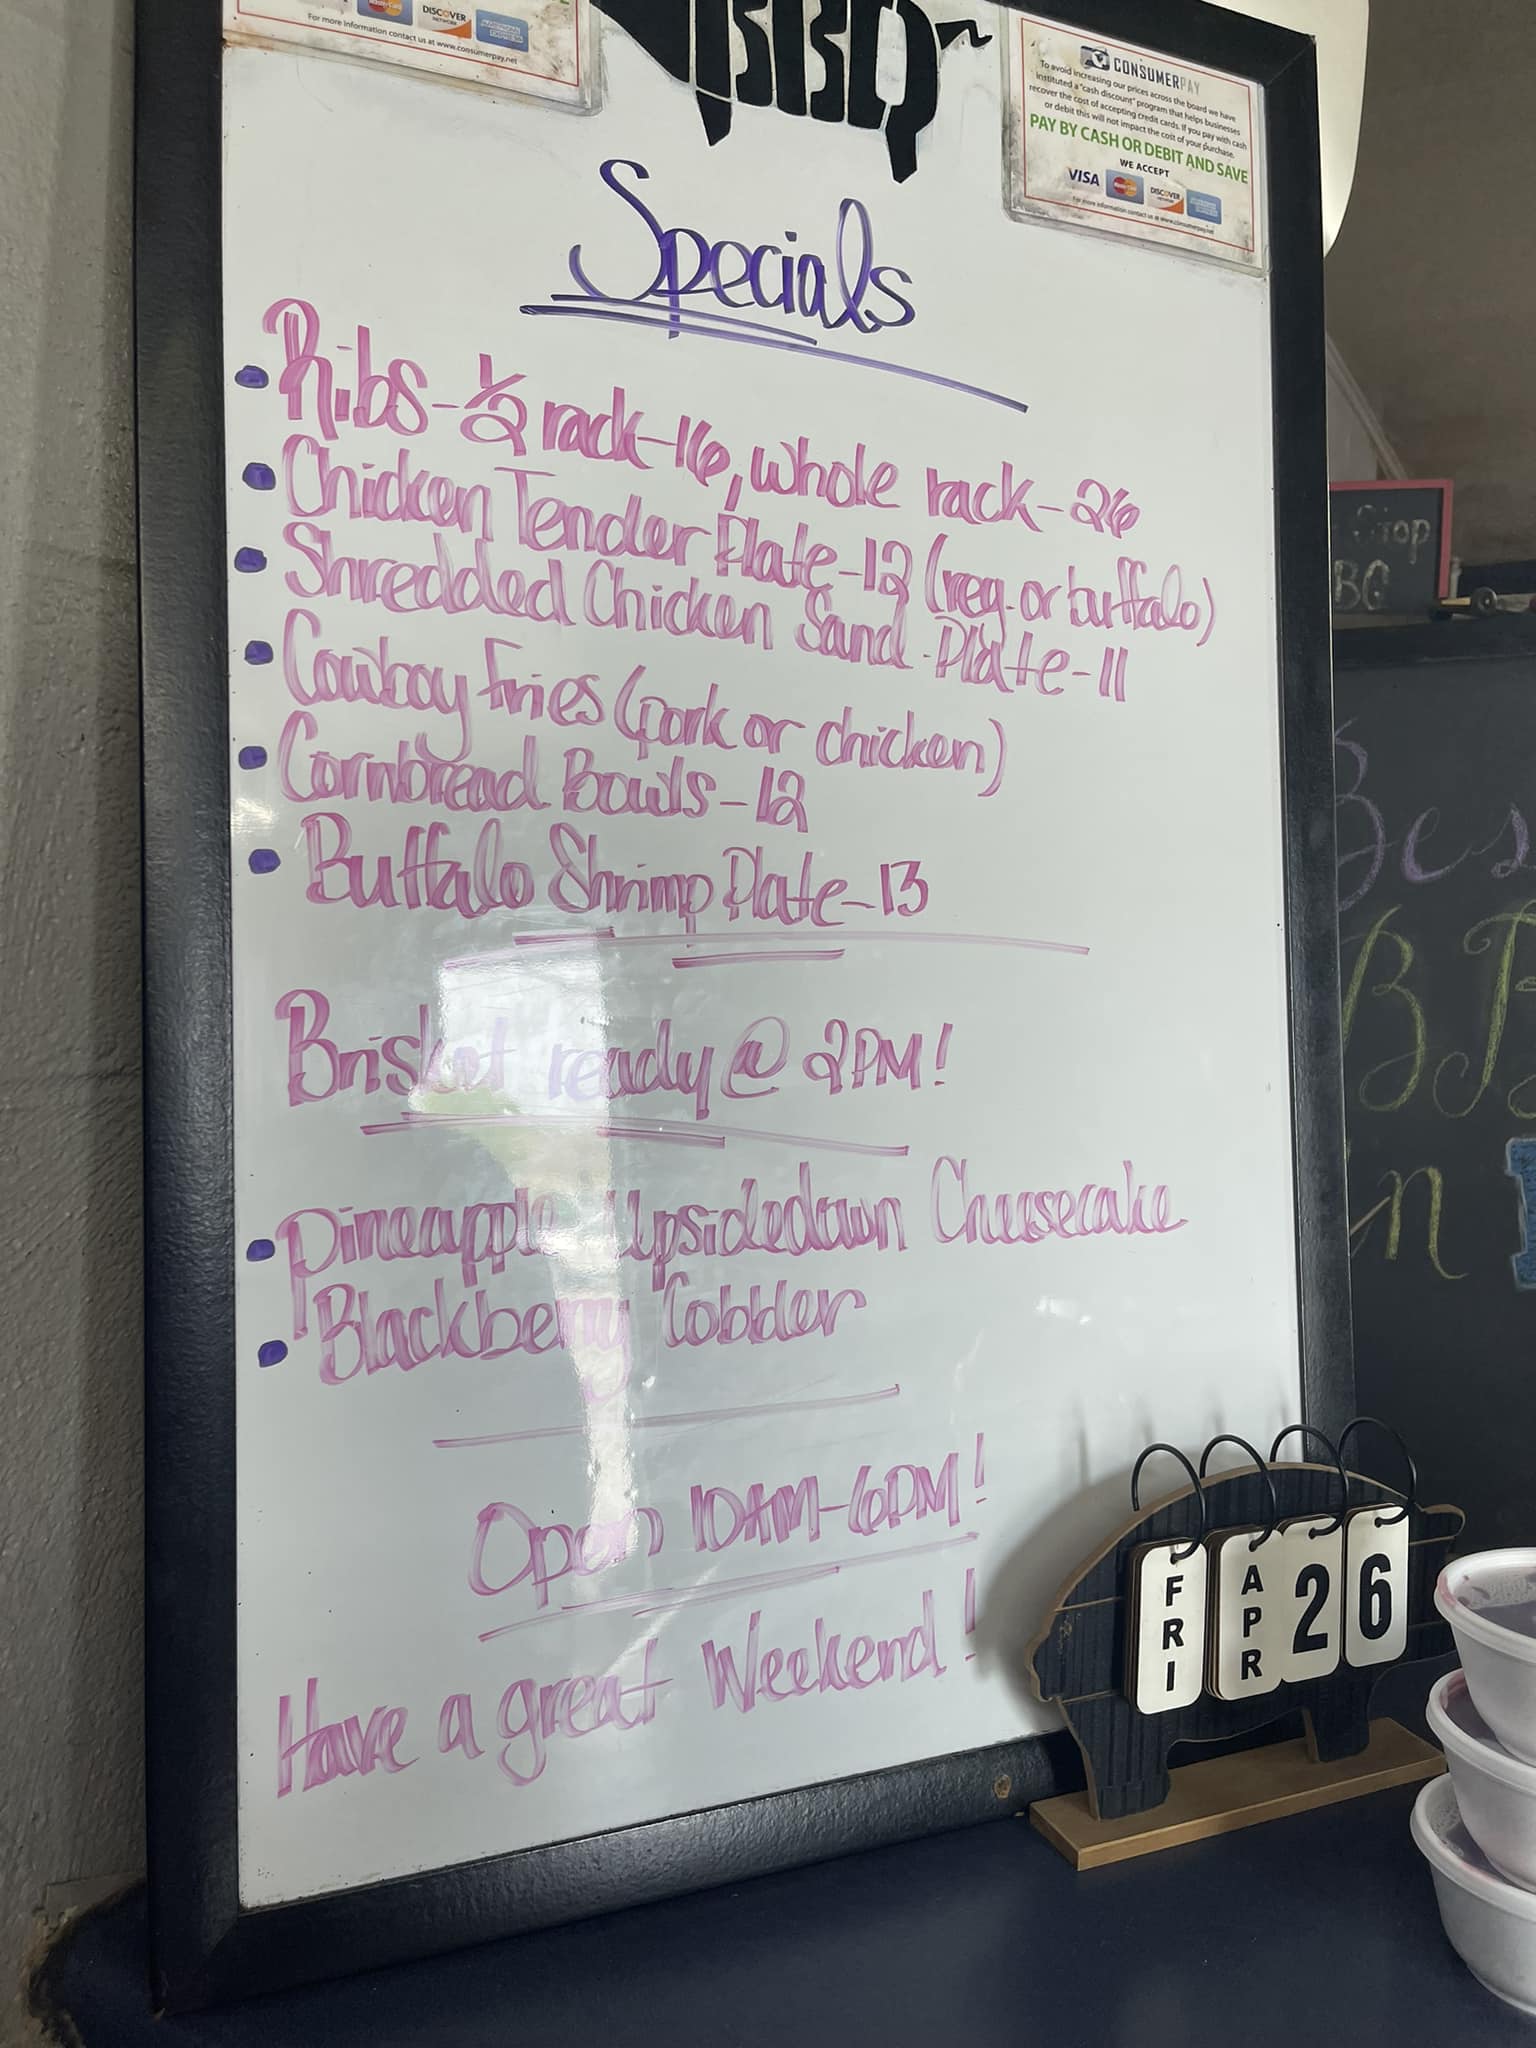 DISCOVER
NETWORK
AMERICAN
EXPRESS
For more information contact us at www.consumerpay.net
BBQ
CONSUMERPAY
To avoid increasing our prices across the board we have
instituted a "cash discount" program that helps businesses
recover the cost of accepting credit cards. If you pay with cash
or debit this will not impact the cost of your purchase.
PAY BY CASH OR DEBIT AND SAVE
WE ACCEPT
VISA MasterCard DISCOVER NETWORK AMERICAN EXPRESS
For more information contact us at www.consumerpay.net
Specials
• Ribs-1/2 rack-16, whole rack-26
• Chicken Tender Plate-12 (reg. or buffalo)
• Shredded Chicken Sand. Plate-11
• Cowboy Fries (pork or chicken)
• Cornbread Bowls-12
• Buffalo Shrimp Plate-13
Brisket ready @ 2PM!
• Pineapple Upsidedown Cheesecake
• Blackberry Cobbler
Open 10AM-6PM!
Have a great Weekend!
FRI APR 26